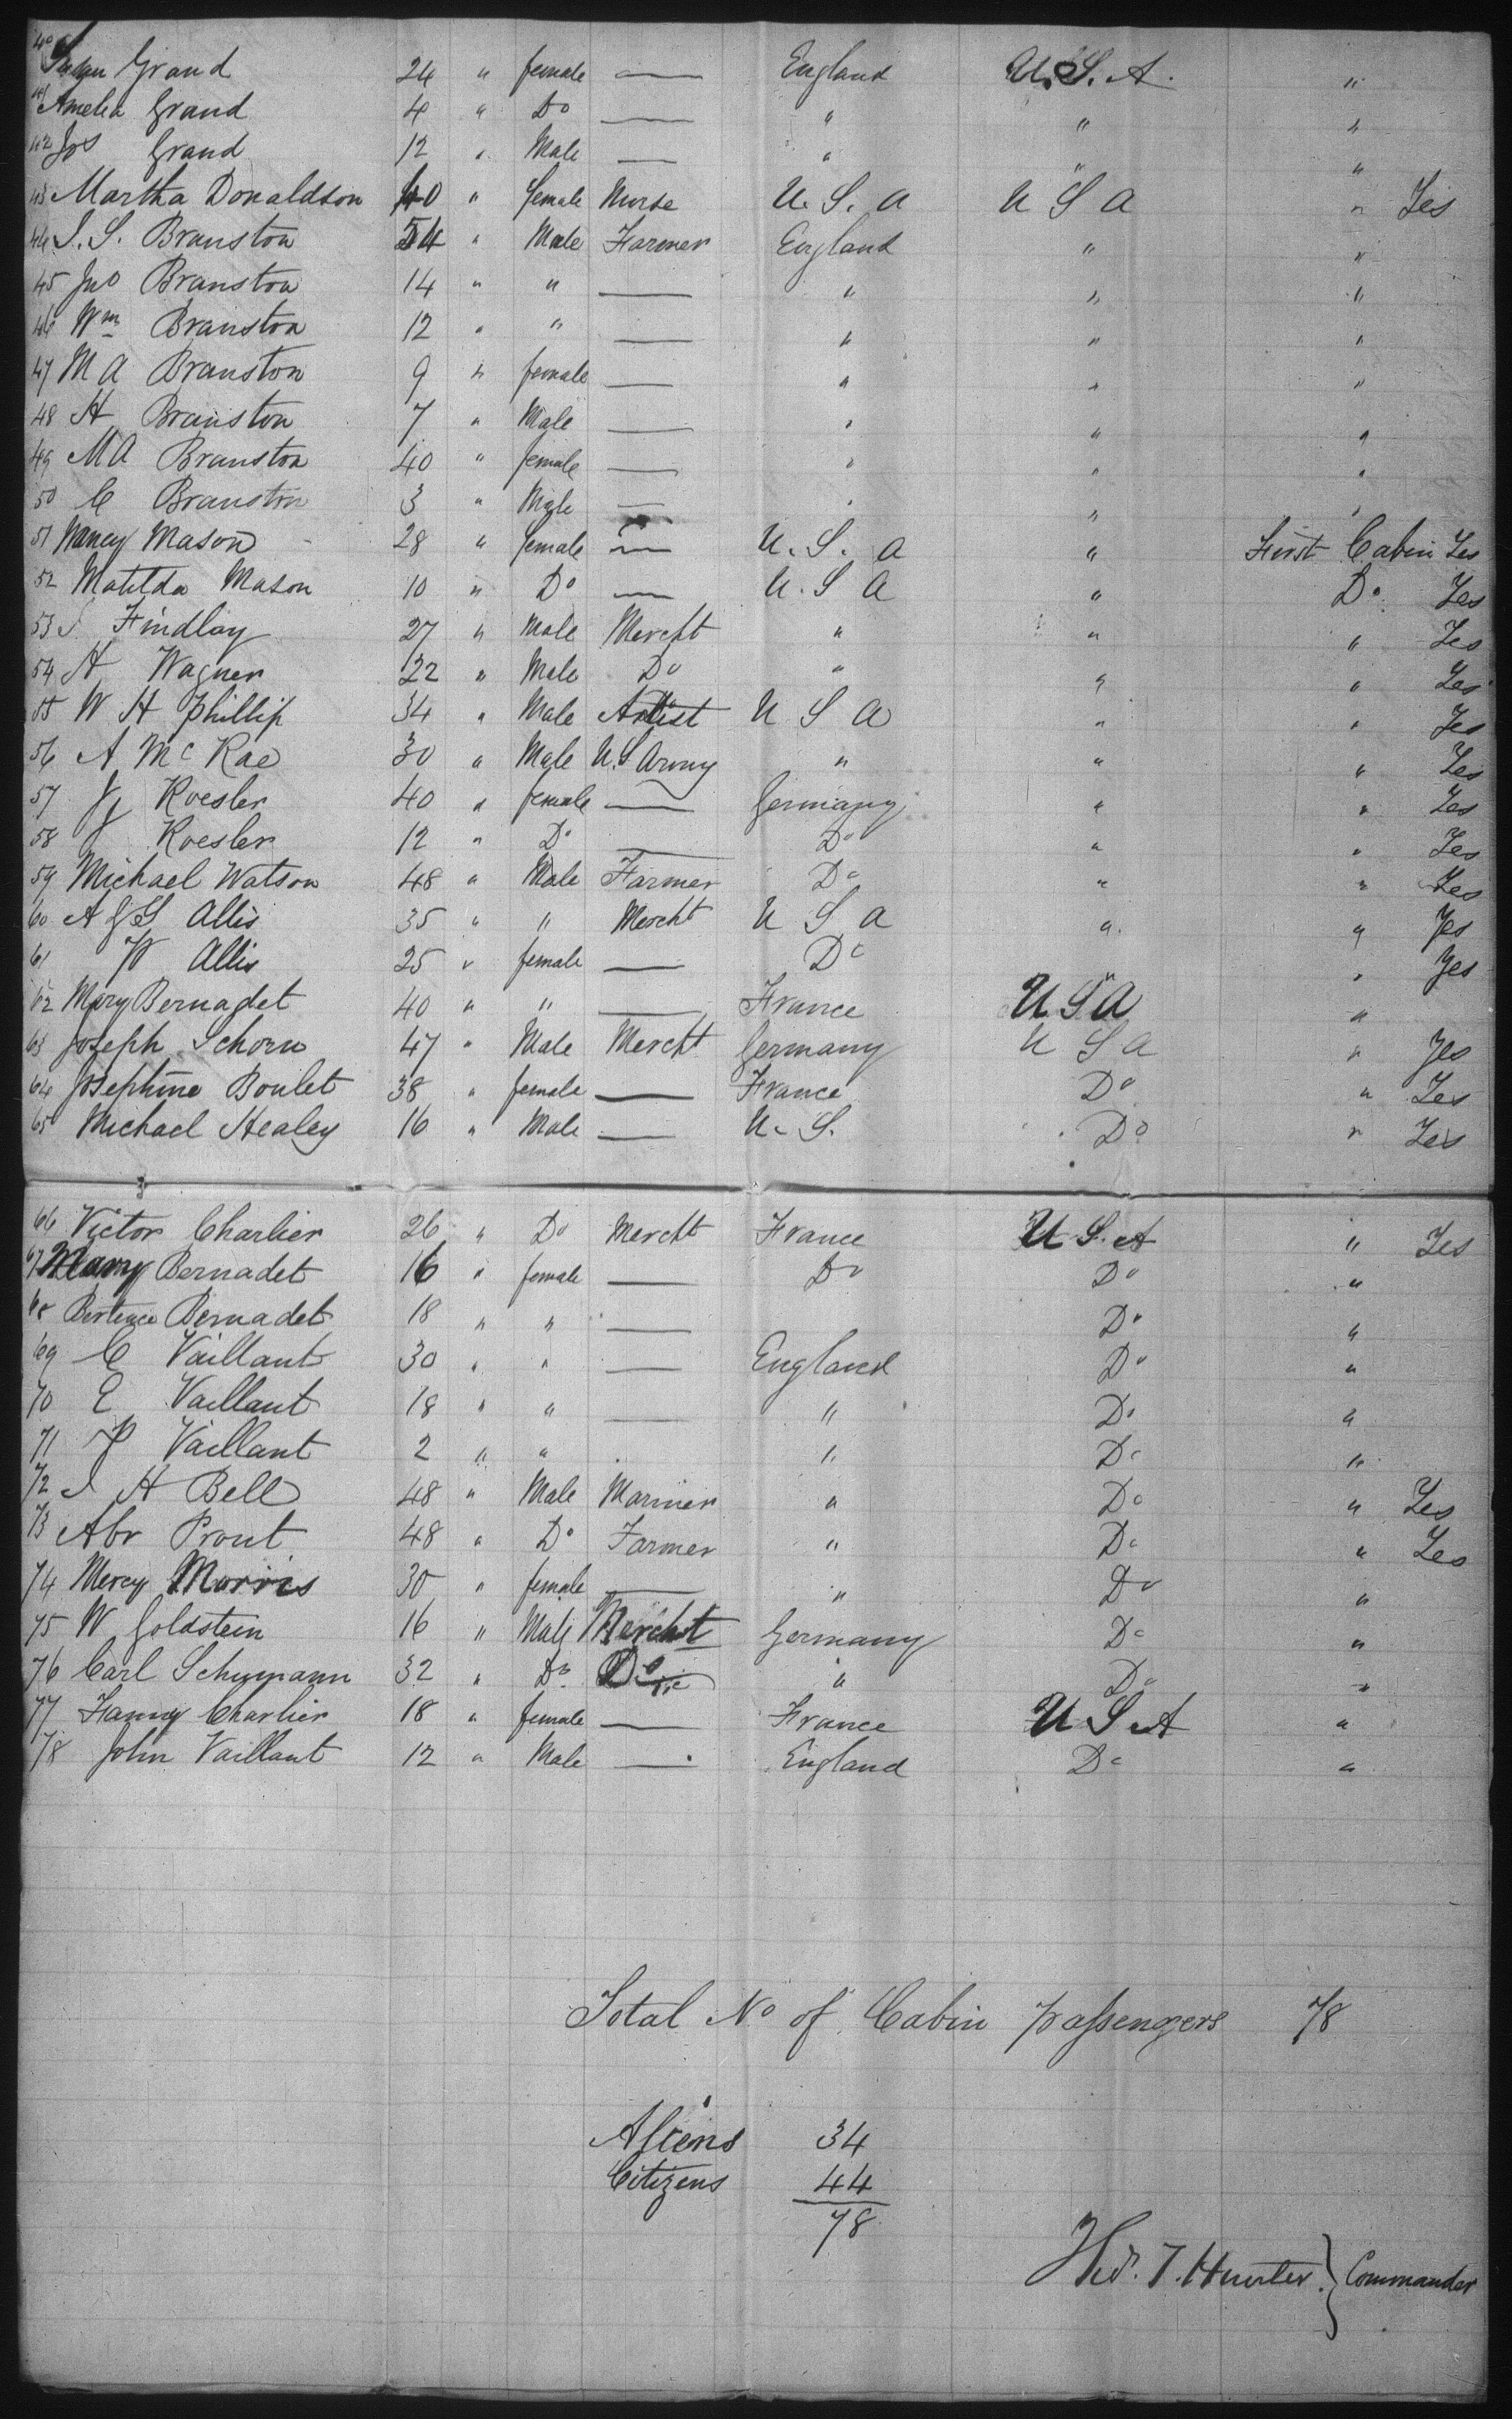 40 Susan Grand 24 " female — England U.S.A. "
41 Amelia Grand 4 " Do — " " "
42 Jos Grand 12 " Male — " " "
43 Martha Donaldson 40 " female Nurse U.S.A U S A " Yes
44 S. S. Branston 54 " Male Farmer England " "
45 Jno Branston 14 " " — " " "
46 Wm Branston 12 " " — " " "
47 M A Branston 9 " female — " " "
48 H Branston 7 " Male — " " "
49 MA Branston 40 " female — " " "
50 C Branston 3 " Male — " " "
51 Nancy Mason 28 " female — U.S.A " First Cabin Yes
52 Matilda Mason 10 " Do — U.S A " Do Yes
53 J Findlay 27 " Male Mercht " " " Yes
54 H Wagner 22 " Male Do " " " Yes
55 W H Phillip 34 " Male Artist U S A " " Yes
56 A McRae 30 " Male U.S Army " " " Yes
57 J Roesler 40 " female — Germany " " Yes
58 J Roesler 12 " Do — Do " " Yes
59 Michael Watson 48 " Male Farmer Do " " Yes
60 A G S Allis 35 " " Mercht U S A " " Yes
61 W Allis 25 " female — Do " " Yes
62 Mary Bernadet 40 " " — France U S A "
63 Joseph Schorn 47 " Male Mercht Germany U S A " Yes
64 Josephine Boulet 38 " female — France Do " Yes
65 Michael Healey 16 " Male — U.S. Do " Yes
66 Victor Charlier 26 " Do Mercht France U S. A " Yes
67 Mary Bernadet 16 " female — Do Do "
68 Bernadet 18 " " — Do "
69 C Vaillant 30 " " — England Do "
70 E Vaillant 18 " " — " Do "
71 P Vaillant 2 " " " Do "
72 J H Bell 48 " Male Mariner " Do " Yes
73 Abr Prout 48 " Do Farmer " Do " Yes
74 Mercy Morris 30 " female — " Do "
75 W Goldstein 16 " Male Mercht Germany Do "
76 Carl Schumann 32 " Do Do " Do "
77 Fanny Charlier 18 " female — France U S A "
78 John Vaillant 12 " Male — England Do "
Total No of Cabin passengers 78
Aliens 34
Citizens 44
78
T. Hunter } Commander